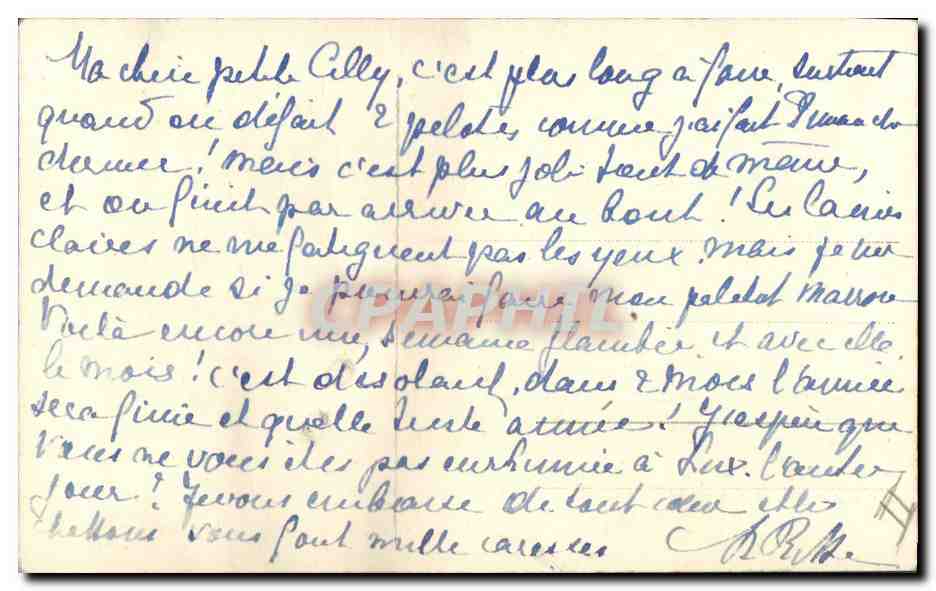 Ma chère petite Cilly, c'est plus long à faire, surtout
quand on défait 2 pelotes comme j'ai fait Dimanche
dernier! mais c'est plus joli tout de même,
et on finit par arriver au bout! Les laines
claires ne me fatiguent pas les yeux. mais je me
demande si je pourrai faire mon paletot marron
Voilà encore une semaine flambée et avec elle
le mois! c'est désolant, dans 2 mois l'année
sera finie et quelle triste année! J'espère que
vous ne vous êtes pas enrhumée à Lux. l'autre
jour? Je vous embrasse de tout cœur et les
vous font mille caresses
CPAPHIL